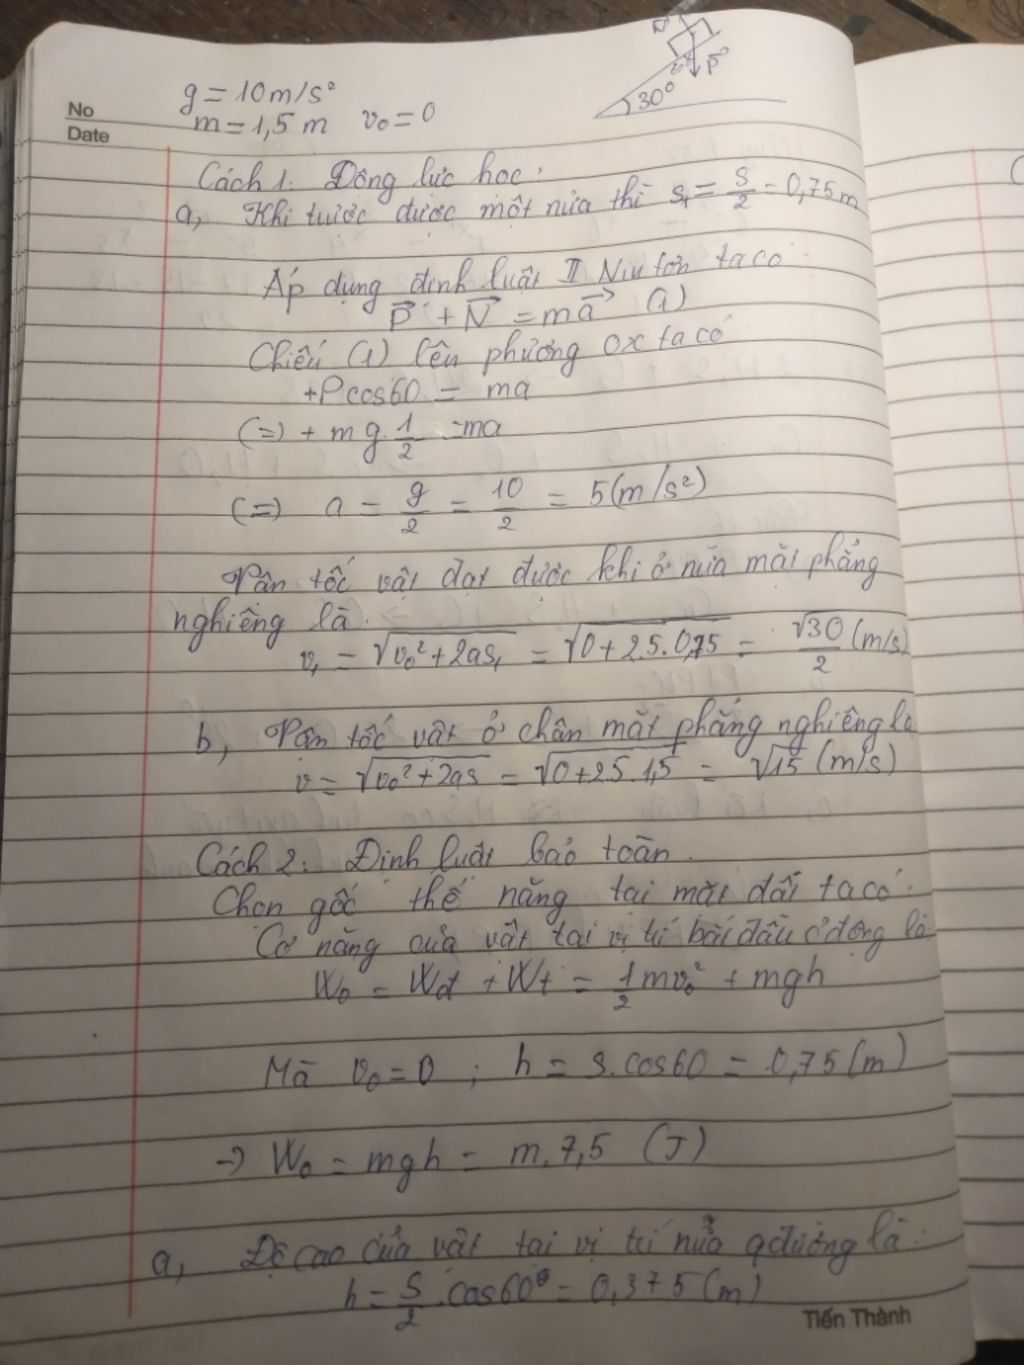 N P
60°
30°
g = 10m/s²
No
m = 1,5 m v₀ = 0
Date
Cách 1: Động lực học:
a, Khi trượt được một nửa thì s₁ = s/2 = 0,75m
Áp dụng định luật II Niu tơn ta có
P + N = ma (1)
Chiếu (1) lên phương ox ta có
+Pcos60 = ma
(=) + mg. 1/2 = ma
(=) a = g/2 = 10/2 = 5(m/s²)
Vận tốc vật đạt được khi ở nửa mặt phẳng
nghiêng là.
v₁ = √v₀²+2as₁ = √0+2.5.0,75 = √30/2 (m/s)
b, Vận tốc vật ở chân mặt phẳng nghiêng là
v = √v₀²+2as = √0+2.5.1,5 = √15 (m/s)
Cách 2: Định luật bảo toàn.
Chọn gốc thế năng tại mặt đất ta có:
Cơ năng của vật tại vị trí bắt đầu cđộng là:
W₀ = Wđ + Wt = 1/2 mv₀² + mgh
Mà v₀ = 0 ; h = s.cos60 = 0,75 (m)
→ W₀ = mgh = m.7,5 (J)
a, Độ cao của vật tại vị trí nửa qđường là:
h = s/2 .cos60° = 0,375 (m)
Tiến Thành